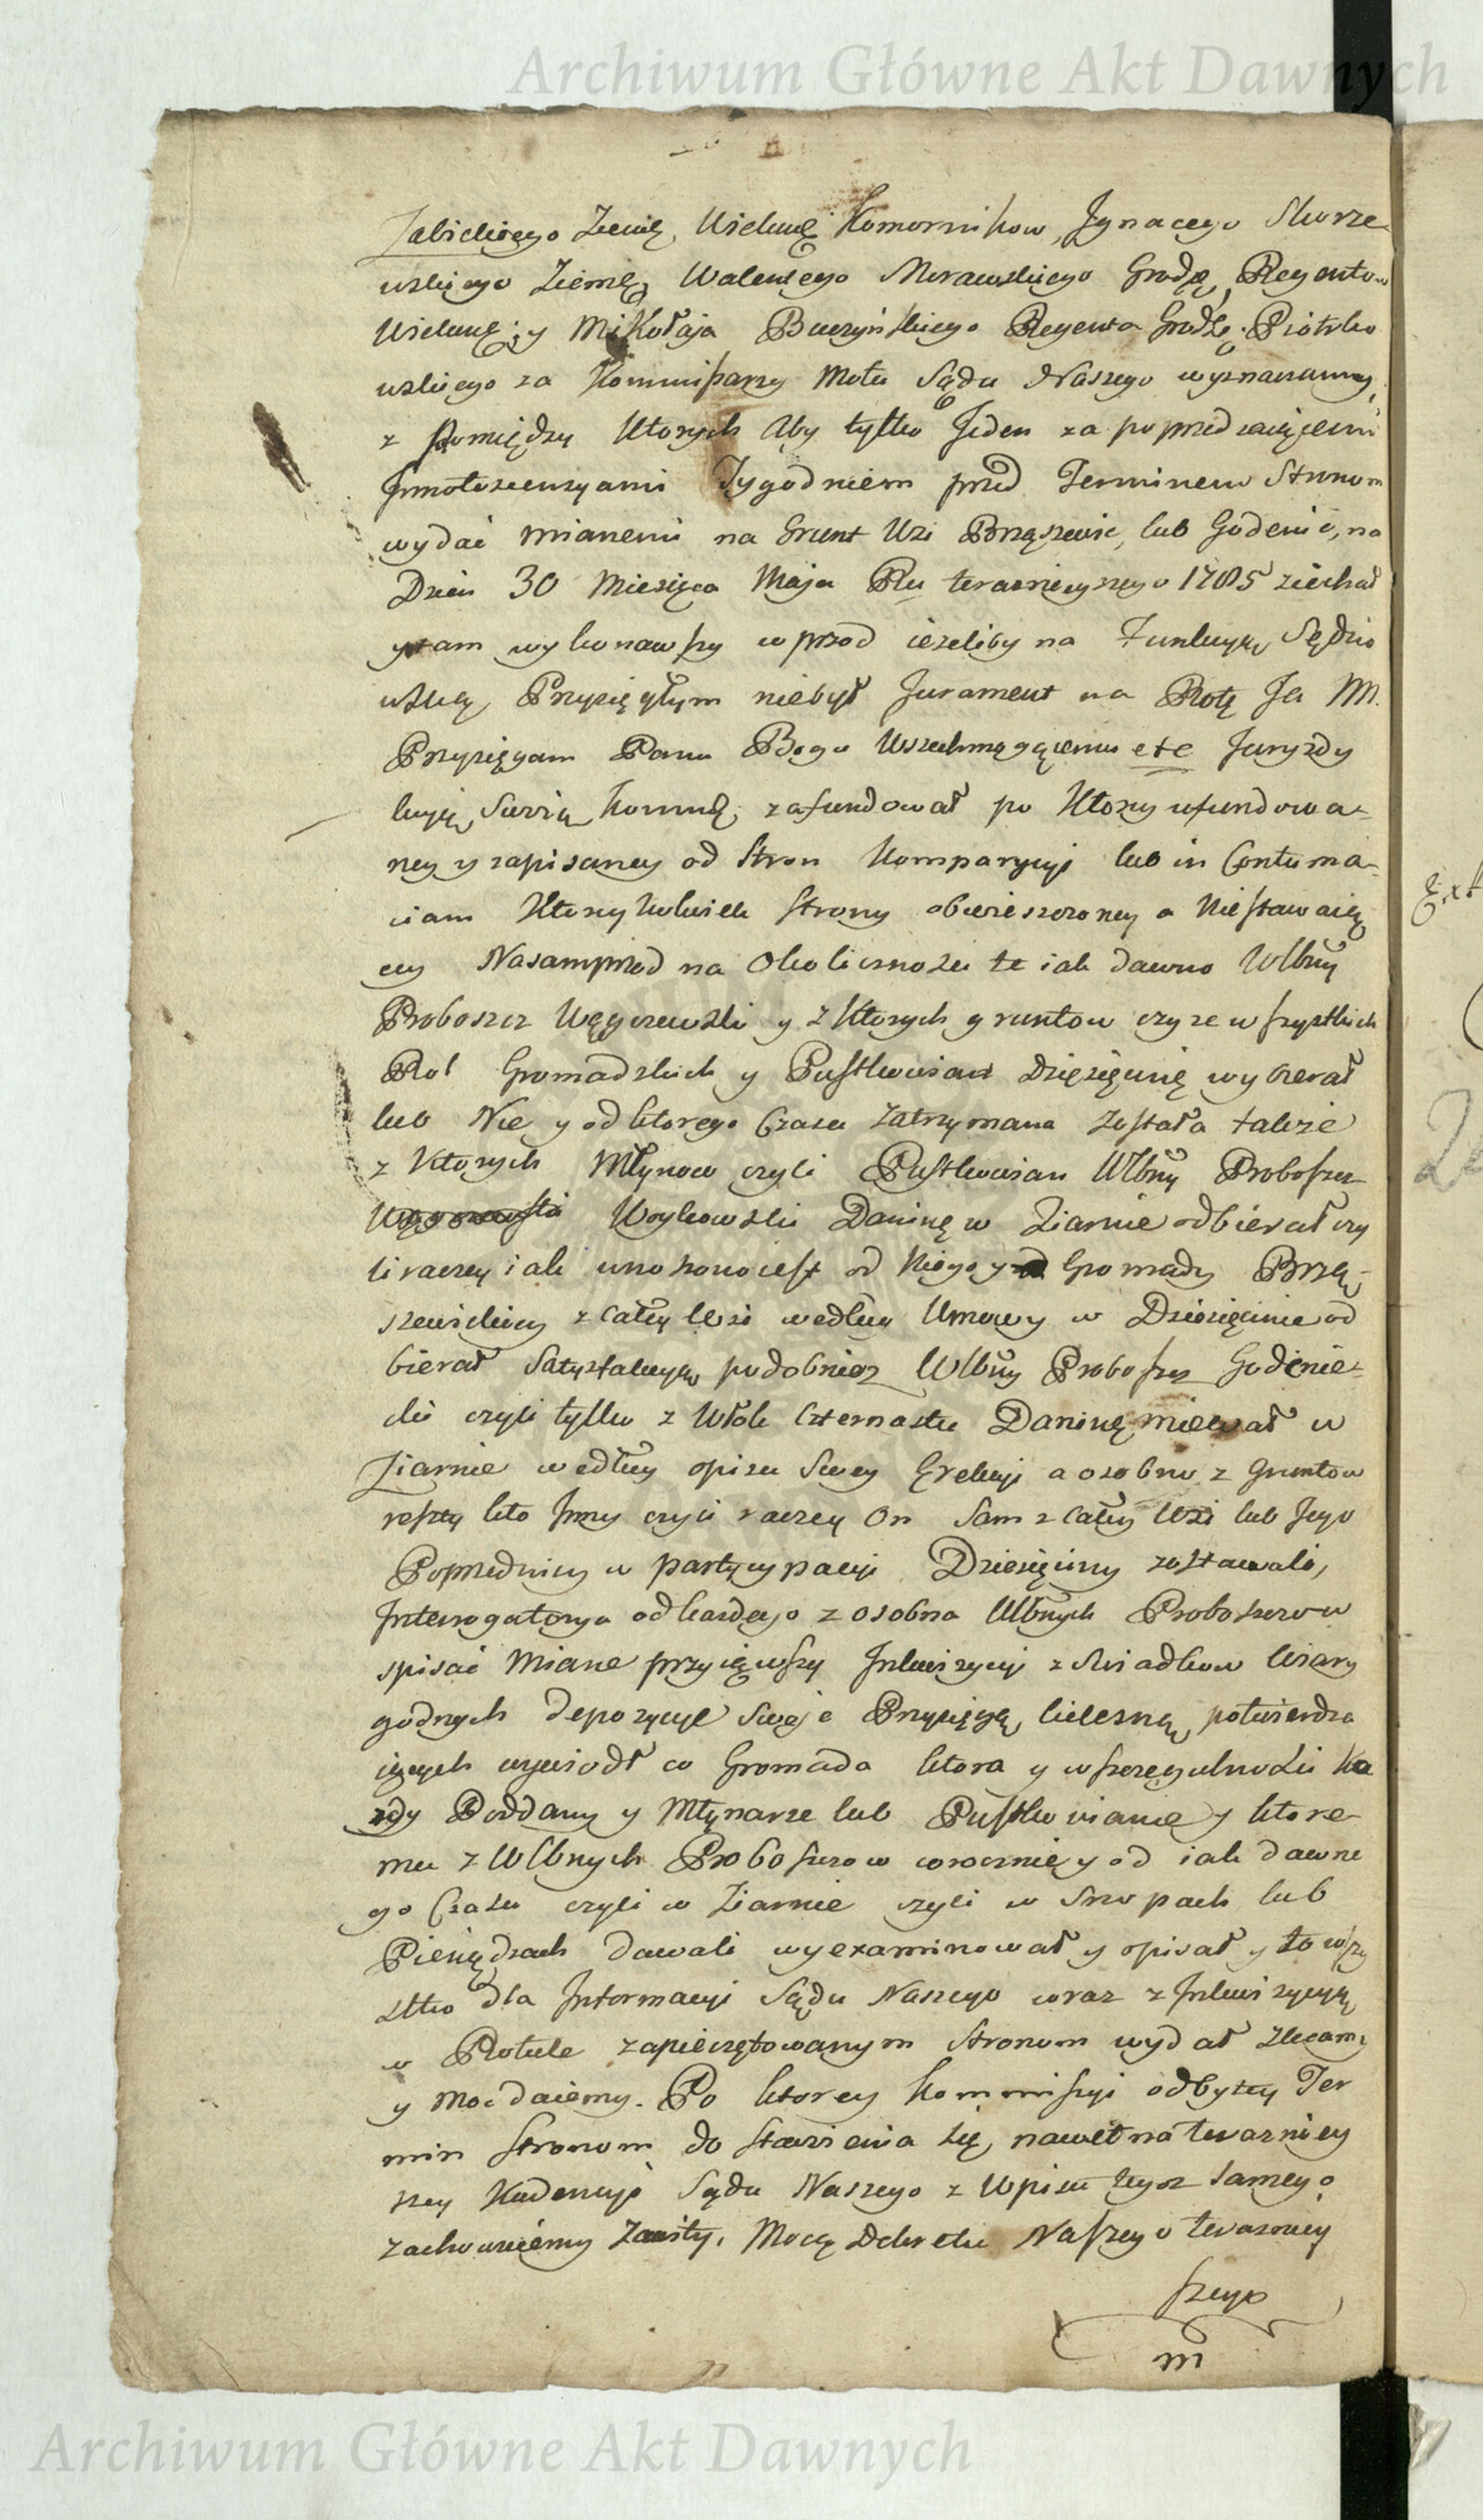 Archiwum Główne Akt Dawnych
Zabickiego Ziemę, Wielunę Komornikow, Ignacego Skorze
wskiego Ziemę, Walentego Morawskiego Grodzę Regentow
Wielunę; y Mikołaja Buczyńskiego Regenta Grodzę. Piotrko
wskiego za Kommissarzy Motu Sądu Naszego wyznaczamy,
z pomiędzy Ktorych Aby tylko Jeden za poprzedzaiącemi
Jnnotescencyami Tygodniem przed Terminem Stronom
wydać mianemi na Grunt Wsi Brząszewic, lub Godenic, na
Dzień 30 Miesiąca Maja Rku teraznieyszego 1785 ziechał
y tam wykonawszy wprzod ieżeliby na Funkcyą Sędzio
wską Przysięgłym niebył Jurament na Rotę Ja M.
Przysięgam Panu Bogu Wszechmogącemu etc Juryzdy
kcyą Swoią Kommę. zafundował po Ktorey ufundowa-
ney y zapisaney od Stron Komparycyi lub in Contuma-
ciam Ktoreykolwiek Strony obwieszczoney a Niestawaią
cey Nasamprzod na Okoliczności te iak dawno Wlbny
Proboszcz Węgrzewski y z Ktorych gruntow czy ze wszystkich
Rol Gromadzkich y Pustkowian Dziesięcinę wybierał
lub Nie y od ktorego Czasu zatrzymana została także
z Ktorych Młynow czyli Pustkowian Wlbny Proboszcz
Woykowski Daninę w Ziarnie odbierał czy
li raczey iak wnoszono iest od Niego y Gromady Brzą-
szewickiey z całey Wsi według Umowy w Dziesięcinie od
bierał Satysfakcyą podobnież Wlbny Proboszcz Godenie-
cki czyli tylko z Włok Czternastu Daninę miewał w
Ziarnie według opisu Swey Erekcyi a osobno z Gruntow
reszty kto Jnny czyli raczey On Sam z całey Wsi lub Jego
Poprzednicy w partycypacyi Dziesięciny zostawali,
Jnterrogatorya od każdego z osobna Wlbnych Proboszczow
spisać Miane przyiąwszy Jnkwizycyi z Swiadkow Wiary
godnych depozycye Swoje Przysięgą cielesną potwierdza
iących wywiodł co Gromada ktora y w szczegulności ka
żdy Poddany y Młynarze lub Pustkowianie y ktore-
mu z Wlbnych Proboszczow corocznie y od iak dawne
go Czasu czyli w Ziarnie czyli w Snopach lub
Pieniądzach dawali wyexaminował y opisał y to wszy
stko dla Jnformacyi Sądu Naszego wraz z Jnkwizycyą
w Rotule zapieczętowanym Stronom wydał zlecamy
y Moc daiemy. Po ktorey Kommissyi odbytey Ter
min Stronom do Stawienia Się nawet na teraznie y
szey Kadencyi Sądu Naszego z Wpisu tegoż Samego
zachowuiemy Zawity. Mocą Dekretu Naszego teraznie y
szego
m
Archiwum Główne Akt Dawnych